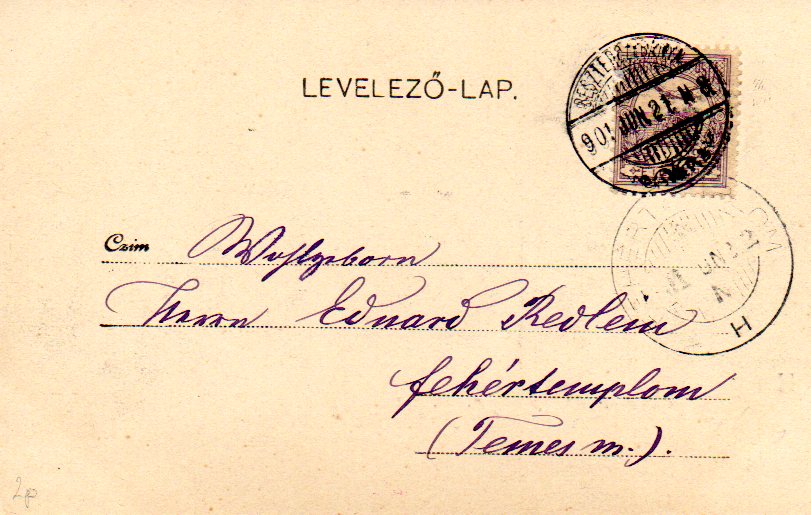 LEVELEZŐ-LAP.
901 JUN. 21. N 8
Czim Wohlgeborn
Herrn Eduard Redlem
Fehértemplom
(Temes m.).
2p